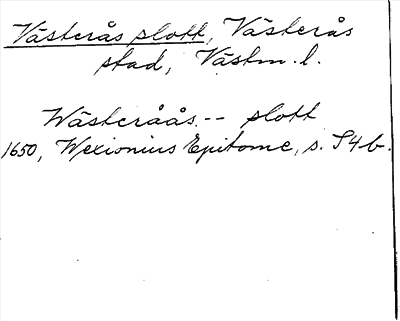 Västerås slott, Västerås
stad, Västm. l.
Wästeråås -- slott
1650, Wexionius Epitome, s. S4b.